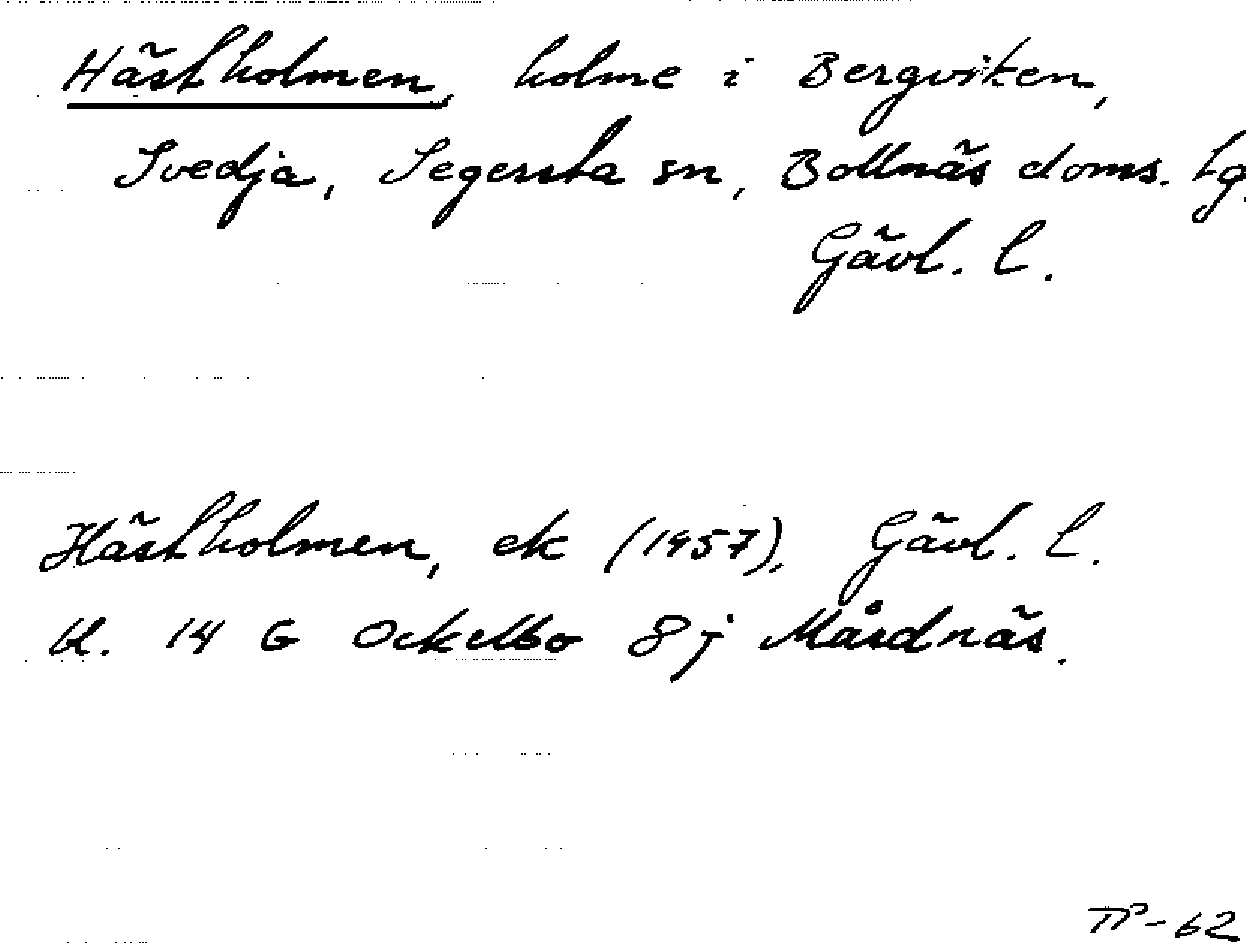 Hästholmen, holme i Bergviken,
Svedja, Segersta sn, Bollnäs doms. lg.
Gävl. l.
Hästholmen, ek (1957), Gävl. l.
bl. 14 G Ockelbo 8 j Mårdnäs.
TP-62